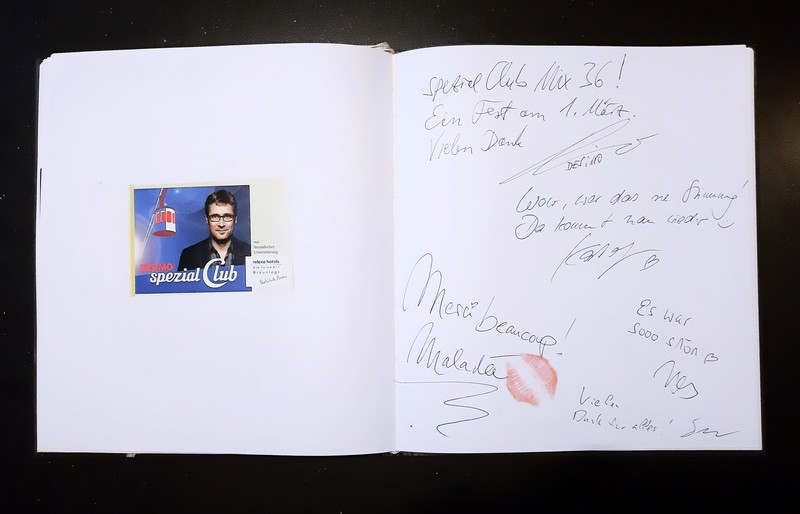 DESIMO
spezial Club
mit
freundlicher
Unterstützung
relexa hotels
Braunlage
spezial Club Mix 36!
Ein Fest am 1. März.
Vielen Dank
DESiMO
Wow, war das ne Stimmung!
Da kommt man wieder
Merci beaucoup!
Maladée
Es war
sooo schön
Vielen
Dank für alles!